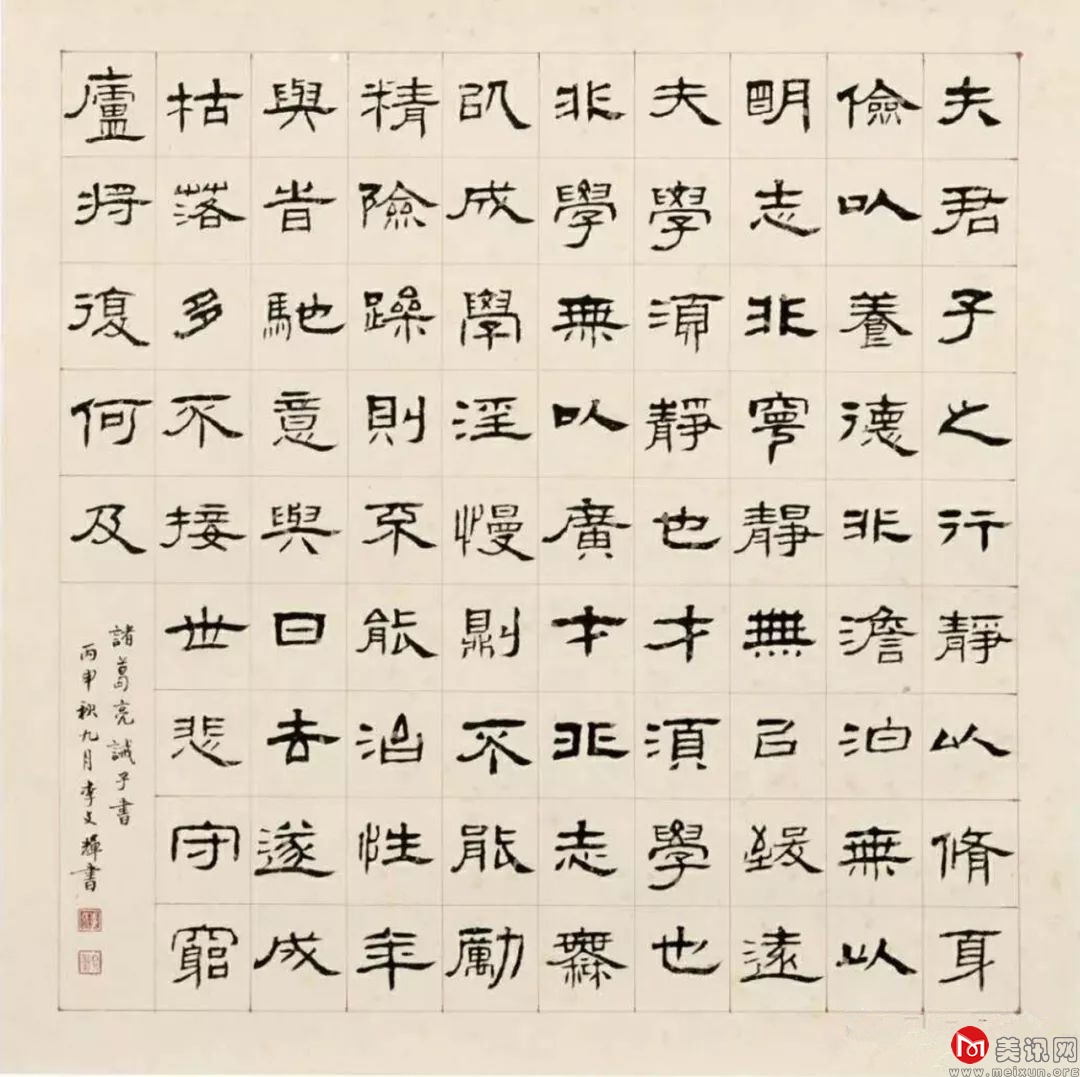 夫君子之行靜以脩身
儉以養德非澹泊無以
明志非寧靜無以致遠
夫學須靜也才須學也
非學無以廣才非志無
以成學淫慢則不能勵
精險躁則不能治性年
與旹馳意與日去遂成
枯落多不接世悲守窮
廬將復何及
諸葛亮誡子書
丙申秋九月李文輝書
美讯网
www.meixun.org